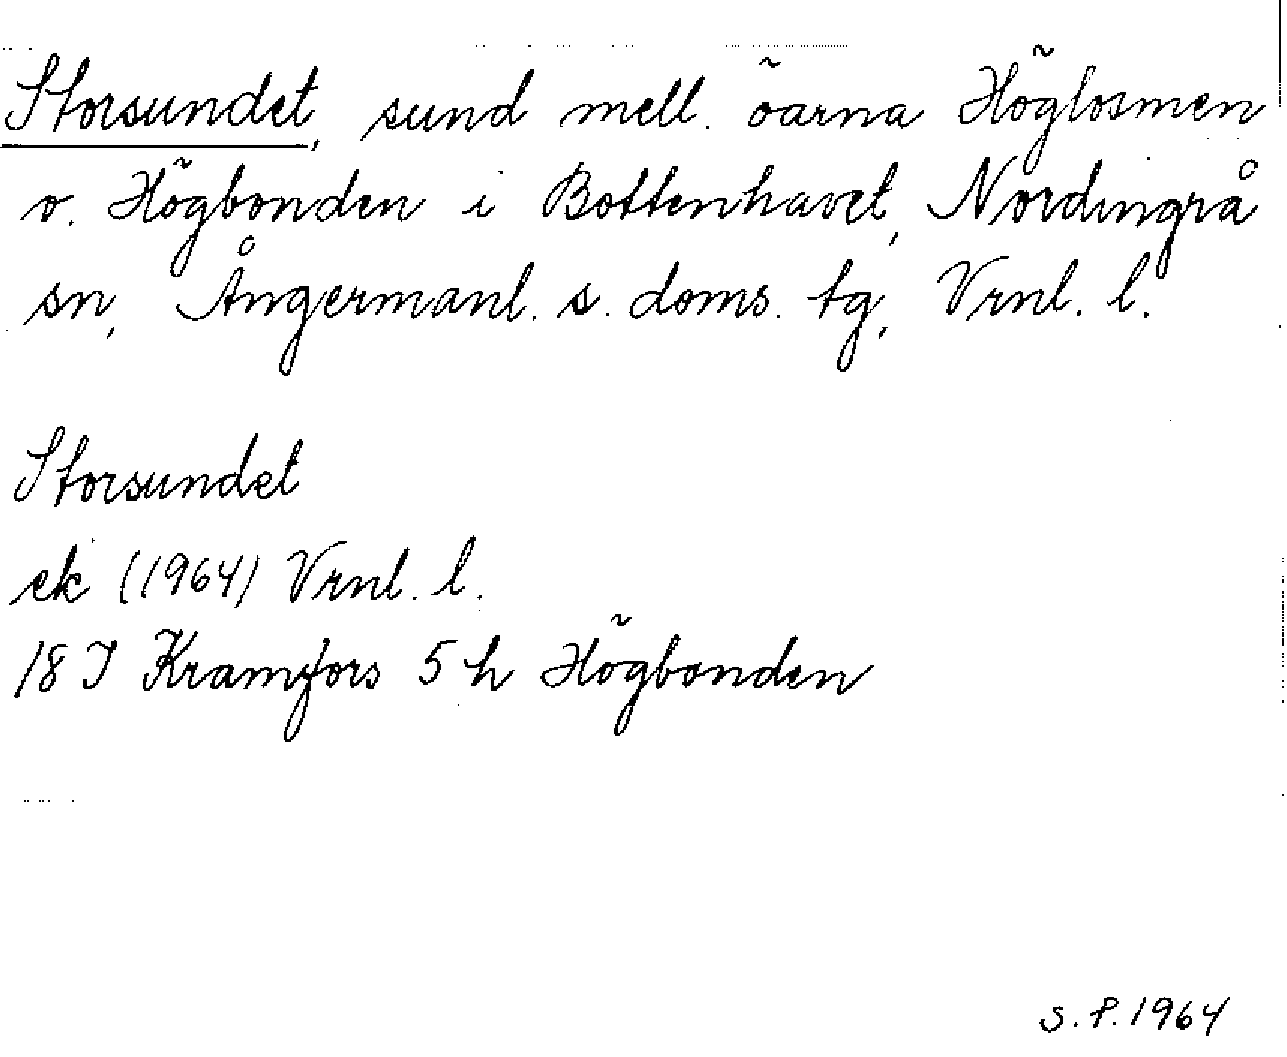 Storsundet, sund mell. öarna Höglosmen
o. Högbonden i Bottenhavet, Nordingrå
sn, Ångermanl. s. doms. tg, Vrnl. l.
Storsundet
ek (1964) Vrnl. l.
18 I Kramfors 5 h Högbonden
S.P. 1964